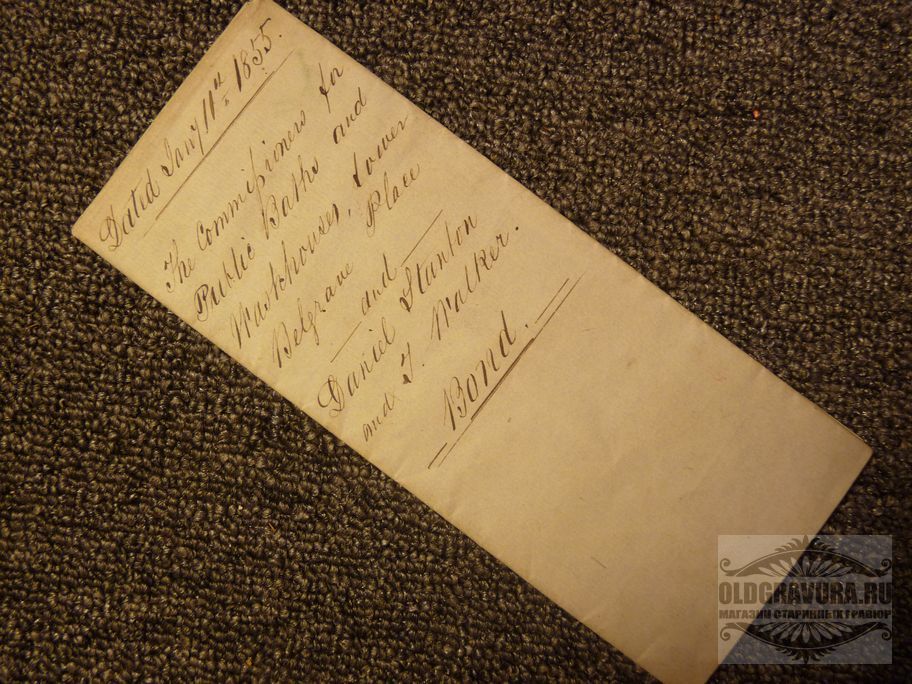 Dated Jany 11th 1855.
The Commissioners for
Public Baths and
Washhouses, Lower
Belgrave Place
and
Daniel Stanton
and J. Walker.
Bond.
OLDGRAVURA.RU
МАГАЗИН СТАРИННЫХ ГРАВЮР